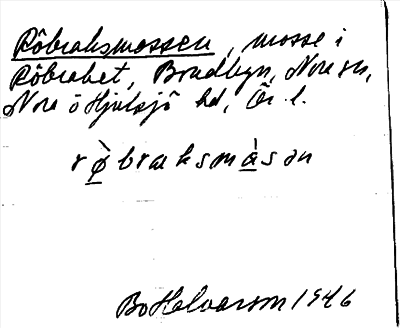 Röbraksmossen, mosse i
Röbraket, Bondbyn, Nora sn,
Nora o Hjulsjö hd, Ör. l.
rø̀braksmàsən
Bo Halvarson 1946